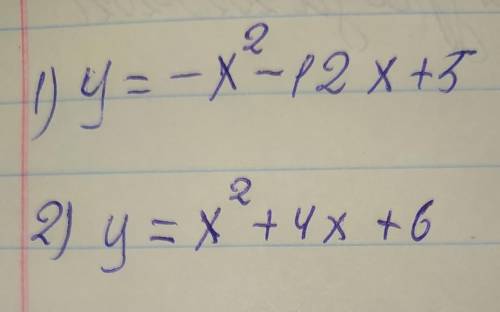 1) y = -x² - 12x + 5
2) y = x² + 4x + 6